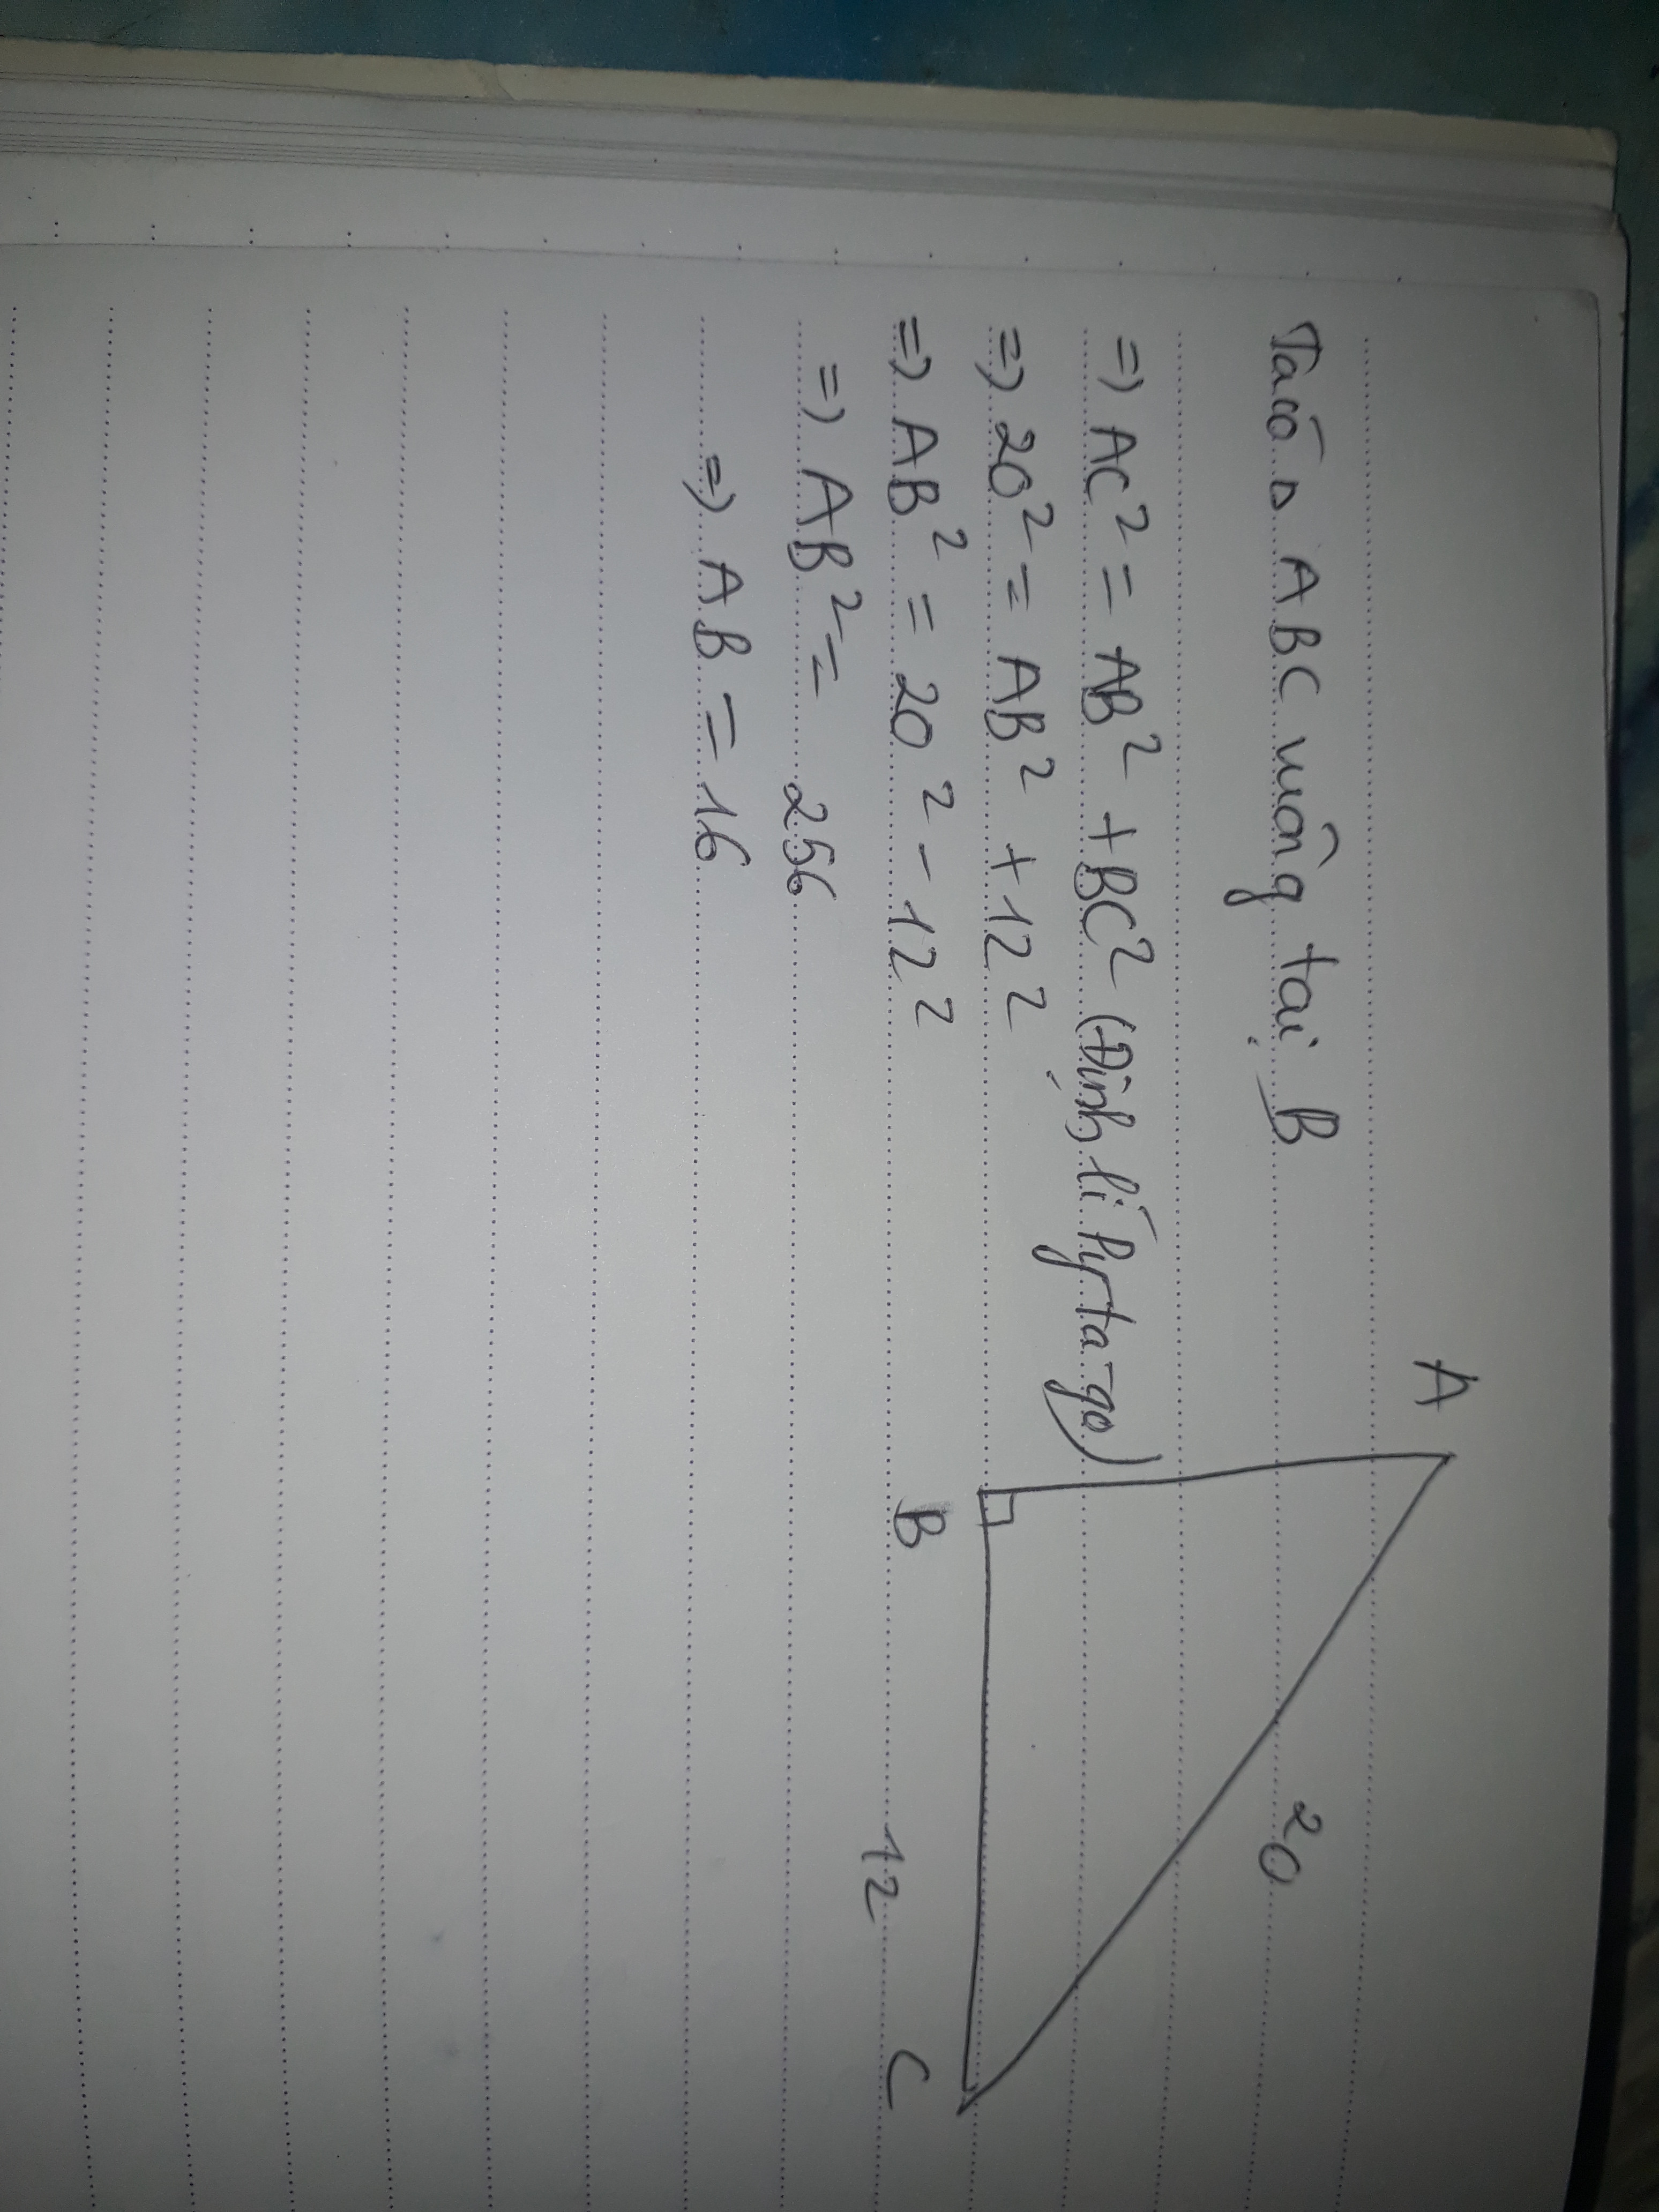 Ta có Δ ABC vuông tại B
=> AC² = AB² + BC² (Định lí Pyta-go)
=> 20² = AB² + 12²
=> AB² = 20² - 12²
=> AB² = 256
=> AB = 16
A
20
B
12
C